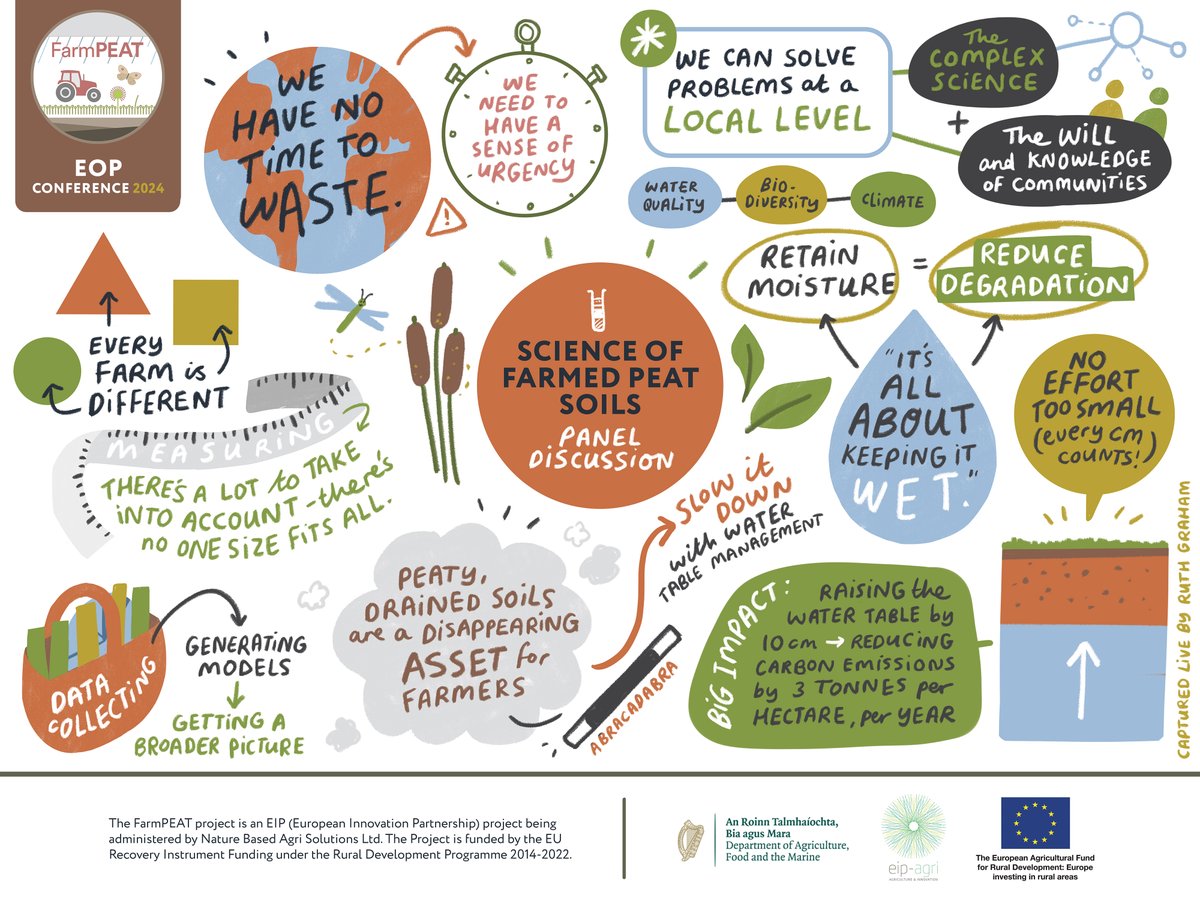 FarmPEAT
EOP
CONFERENCE 2024
WE
HAVE NO
TIME TO
WASTE.
WE
NEED TO
HAVE A
SENSE OF
URGENCY
!
WE CAN SOLVE
PROBLEMS at a
LOCAL LEVEL
The
COMPLEX
SCIENCE
+
The WILL
and KNOWLEDGE
of COMMUNITIES
WATER
QUALITY
BIO-
DIVERSITY
CLIMATE
RETAIN
MOISTURE
=
REDUCE
DEGRADATION
EVERY
FARM is
DIFFERENT
MEASURING
THERE'S A LOT to TAKE
INTO ACCOUNT - there's
no ONE SIZE FITS ALL.
SCIENCE OF
FARMED PEAT
SOILS
PANEL
DISCUSSION
"IT'S
ALL
ABOUT
KEEPING IT
WET."
NO
EFFORT
TOO SMALL
(every cm
COUNTS!)
SLOW it
DOWN
with WATER
TABLE MANAGEMENT
PEATY,
DRAINED SOILS
are a DISAPPEARING
ASSET for
FARMERS
ABRACADABRA
DATA
COLLECTING
GENERATING
MODELS
GETTING A
BROADER PICTURE
BIG IMPACT:
RAISING the
WATER TABLE by
10cm → REDUCING
CARBON EMISSIONS
by 3 TONNES per
HECTARE, per YEAR
CAPTURED LIVE BY RUTH GRAHAM
The FarmPEAT project is an EIP (European Innovation Partnership) project being
administered by Nature Based Agri Solutions Ltd. The Project is funded by the EU
Recovery Instrument Funding under the Rural Development Programme 2014-2022.
An Roinn Talmhaíochta,
Bia agus Mara
Department of Agriculture,
Food and the Marine
eip-agri
AGRICULTURE & INNOVATION
The European Agricultural Fund
for Rural Development: Europe
investing in rural areas